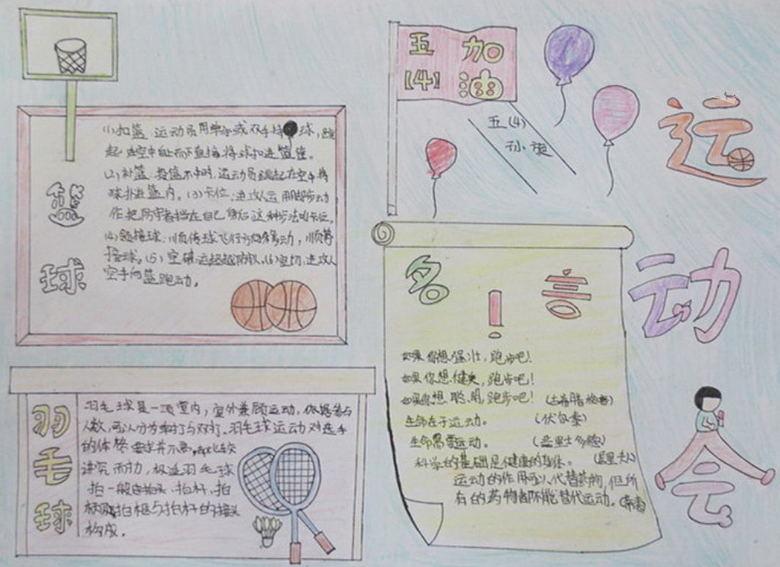 运
动
会
五 加
(4) 油
五(4)
孙
篮
球
(1)扣篮 运动员用单手或双手持球,跳
起在空中自上而下直接将球扣进篮筐。
(2)补篮 投篮不中时,运动员跳起在空中将
球补进篮内。(3)卡位:进攻人运用脚步动
作把防守者挡在自己身后这种步法叫卡位。
(4)
接球。(5)空切:进攻人
空手向篮跑动。
羽
毛
球
羽毛球是一项室内,室外兼顾运动。依据参与
人数,可以分为单打与双打,羽毛球运动对选手
的体格要求并不高,却比较
讲究耐力,极适
拍一般由拍头、拍杆、拍
柄及拍框与拍杆的接头
构成。
名言!
如果你想强壮,跑步吧!
如果你想健美,跑步吧!
如果你想聪明,跑步吧!(古希腊格言)
生命在于运动。(伏尔泰)
生命需要运动。(亚里士多德)
科学的基础是健康的身体。(居里夫人)
运动的作用可以代替药物,但所
有的药物都不能替代运动。